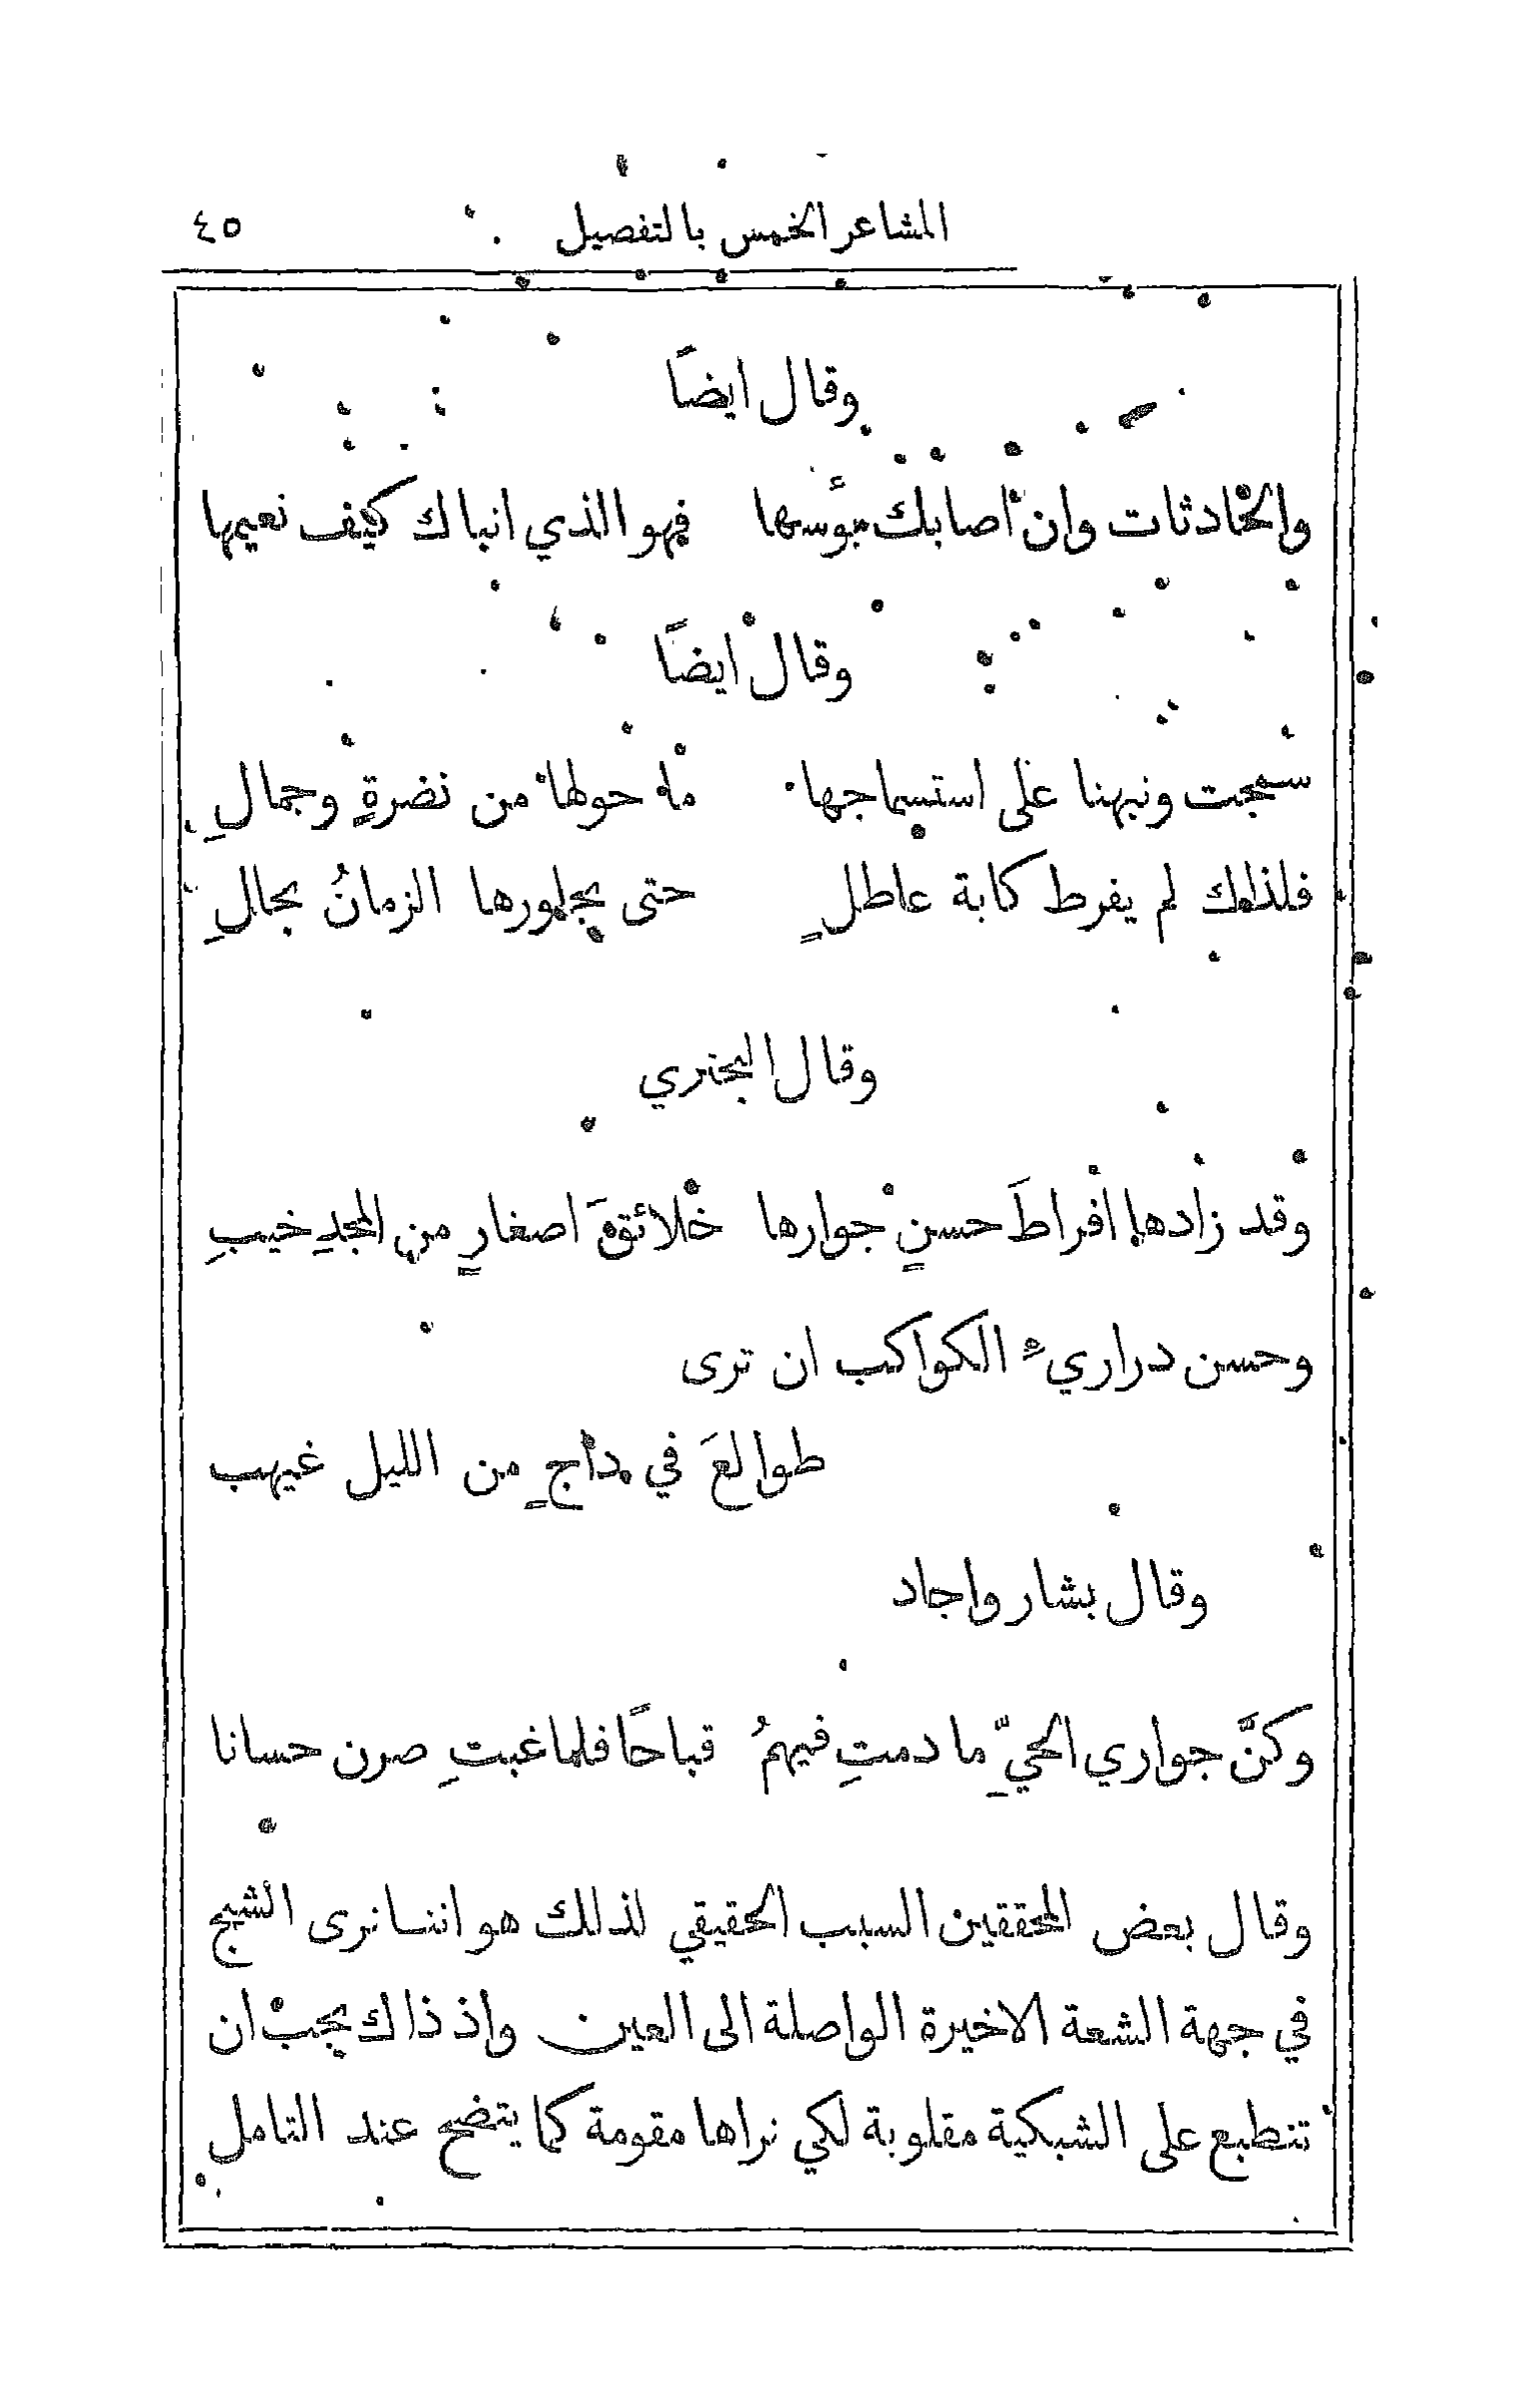 المشاعر الخمس بالتفصيل ٤٥
وقال ايضاً
والحادثات وان اصابك بؤسها فهو الذي انباك كيف نعيمها
وقال ايضاً
سمجت ونبهنا على استسماجها ما حولها من نضرةٍ وجمالِ
فلذلك لم يفرط كابة عاطلٍ حتى يجاورها الزمانُ بحالِ
وقال البحتري
وقد زادها افراطَ حسنٍ جوارها خلائقَ اصفارٍ من المجدِ خيبِ
وحسن دراريء الكواكب ان ترى
طوالعَ في داجٍ من الليل غيهب
وقال بشار واجاد
وكنَّ جواري الحيِّ ما دمتِ فيهمُ قباحًا فلما غبتِ صرن حسانا
وقال بعض المحققين السبب الحقيقي لذلك هو اننا نرى الشبح
في جهة الشعة الاخيرة الواصلة الى العين واذ ذاك يجب ان
تنطبع على الشبكية مقلوبة لكي نراها مقومة كما يتضح عند التامل